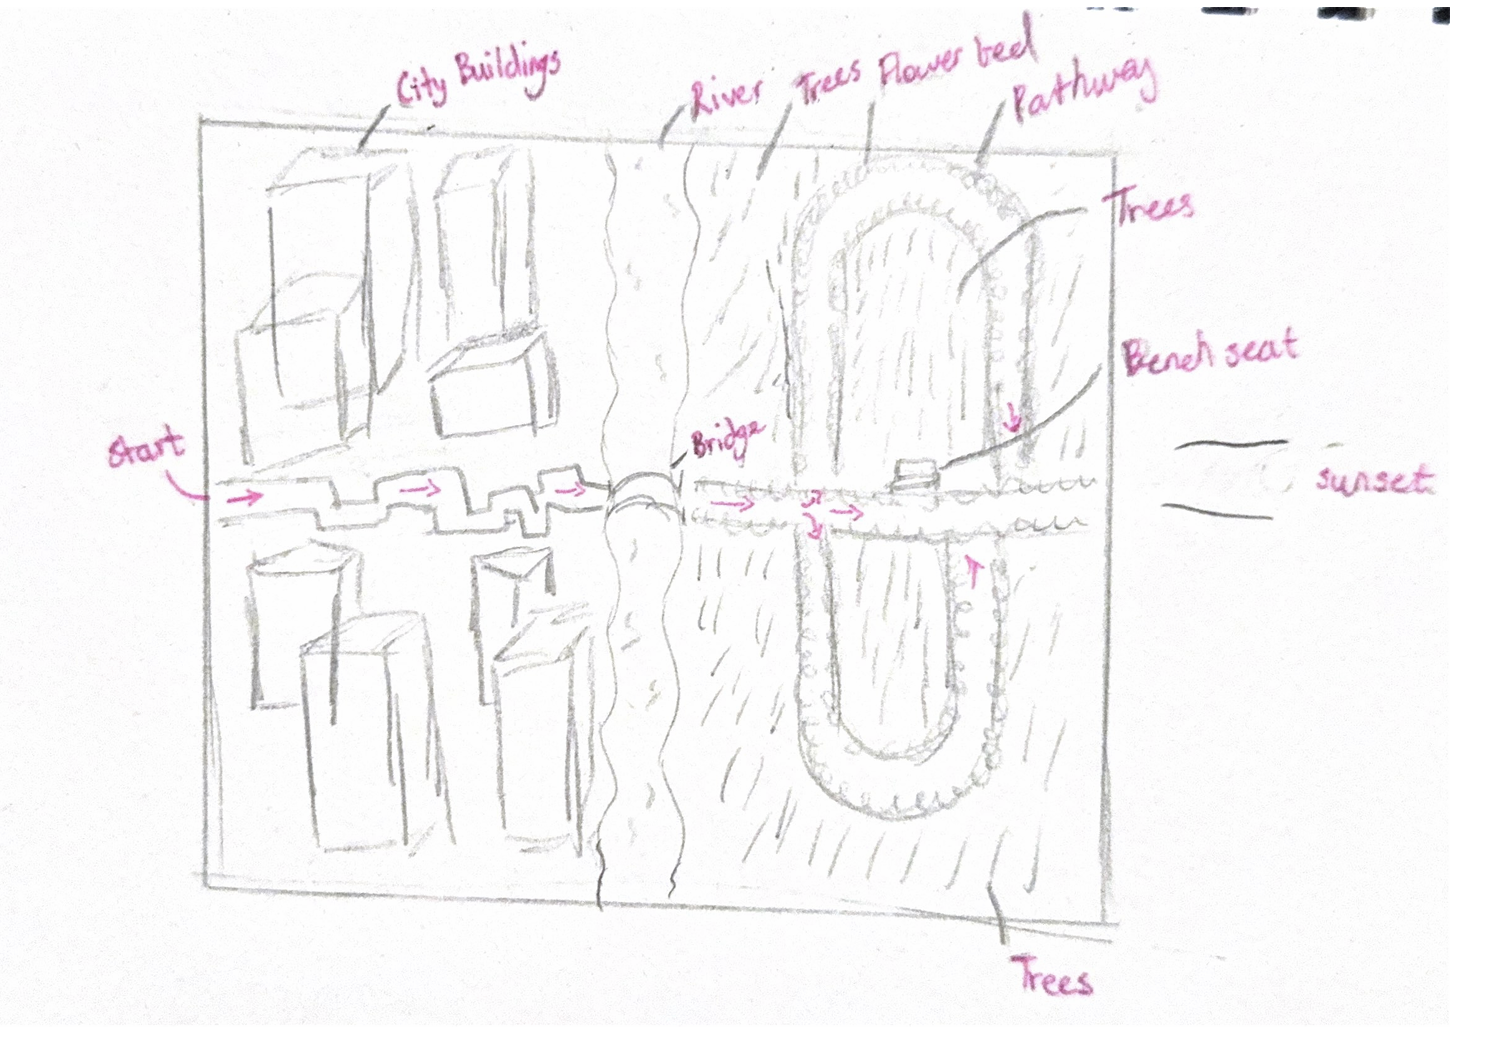 City Buildings
River
Trees
Flower bed
Pathway
Trees
Bench seat
Start
Bridge
sunset
Trees